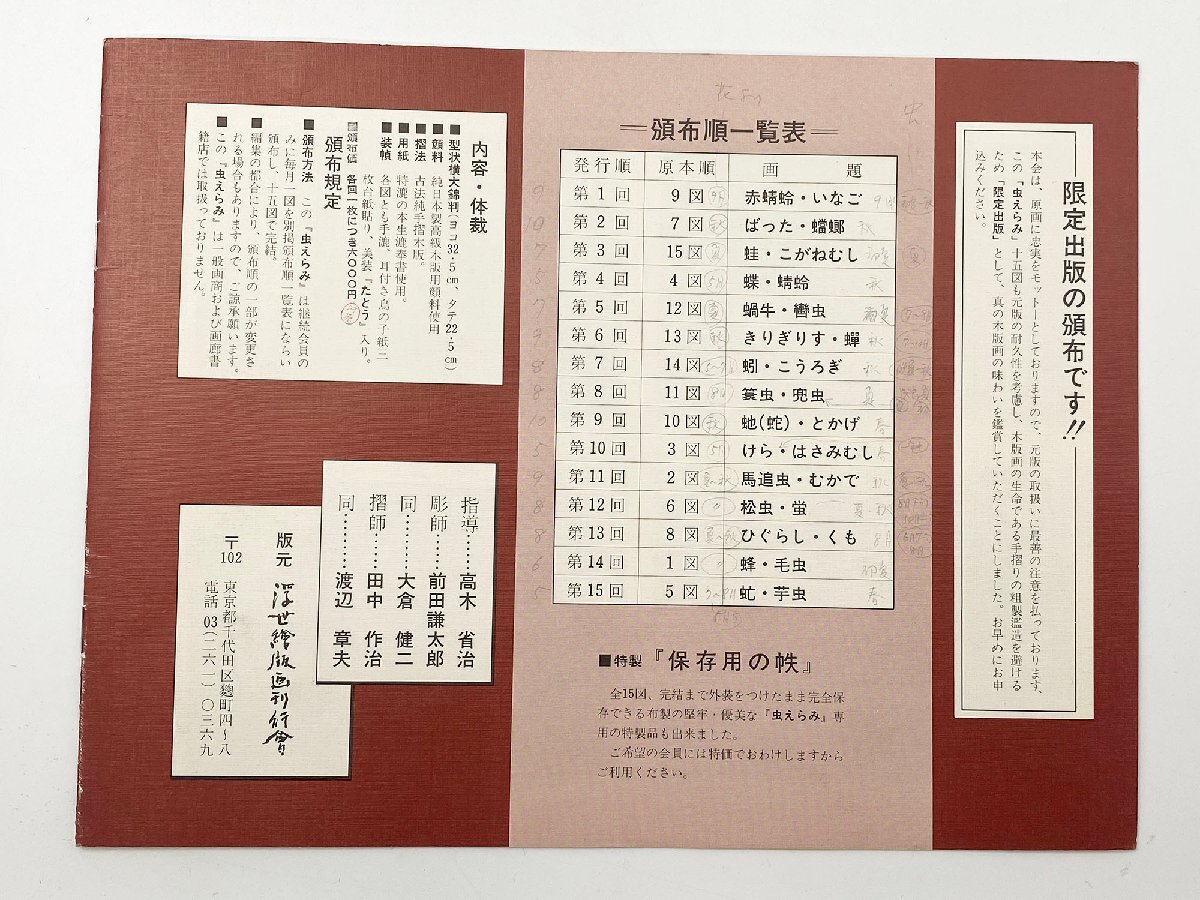 限定出版の頒布です!!
本会は、原画に忠実をモットーとしておりますので、元版の取扱いに最善の注意を払っております。
この『虫えらみ』十五図も元版の耐久性を考慮し、木版画の生命である手摺りの粗製濫造を避ける
ため「限定出版」として、真の木版画の味わいを鑑賞していただくことにしました。お早めにお申
込みください。
頒布順一覧表
発行順 原本順 画 題
第1回 9図 赤蜻蛉・いなご
第2回 7図 ばった・蟷螂
第3回 15図 蛙・こがねむし
第4回 4図 蝶・蜻蛉
第5回 12図 蝸牛・轡虫
第6回 13図 きりぎりす・蟬
第7回 14図 蚓・こうろぎ
第8回 11図 簑虫・兜虫
第9回 10図 虵(蛇)・とかげ
第10回 3図 けら・はさみむし
第11回 2図 馬追虫・むかで
第12回 6図 松虫・蛍
第13回 8図 ひぐらし・くも
第14回 1図 蜂・毛虫
第15回 5図 虻・芋虫
■特製『保存用の帙』
全15図、完結まで外装をつけたまま完全保
存できる布製の堅牢・優美な『虫えらみ』専
用の特製品も出来ました。
ご希望の会員には特価でおわけしますから
ご利用ください。
内容・体裁
■型状 横大錦判(ヨコ32・5cm、タテ22・5cm)
■顔料 純日本製高級木版用顔料使用
■摺法 古法純手摺木版。
■用紙 特漉の本生漉奉書使用。
■装幀 各図とも手漉、耳付き鳥の子紙二
枚台紙貼り、美装『たとう』入り。
■頒布価 各回一枚につき六〇〇〇円
頒布規定
■頒布方法 この『虫えらみ』は継続会員の
みに毎月一図を別掲頒布順一覧表にならい
頒布し、十五図で完結。
■編集の都合により、頒布順の一部が変更さ
れる場合もありますので、ご諒承願います。
■この『虫えらみ』は一般画商および画廊書
籍店では取扱っておりません。
指導……高木 省治
彫師……前田謙太郎
同………大倉 健二
摺師……田中 作治
同………渡辺 章夫
版元 浮世繪版画刊行會
〒102 東京都千代田区麴町四～八
電話 03(二六一)〇三六九